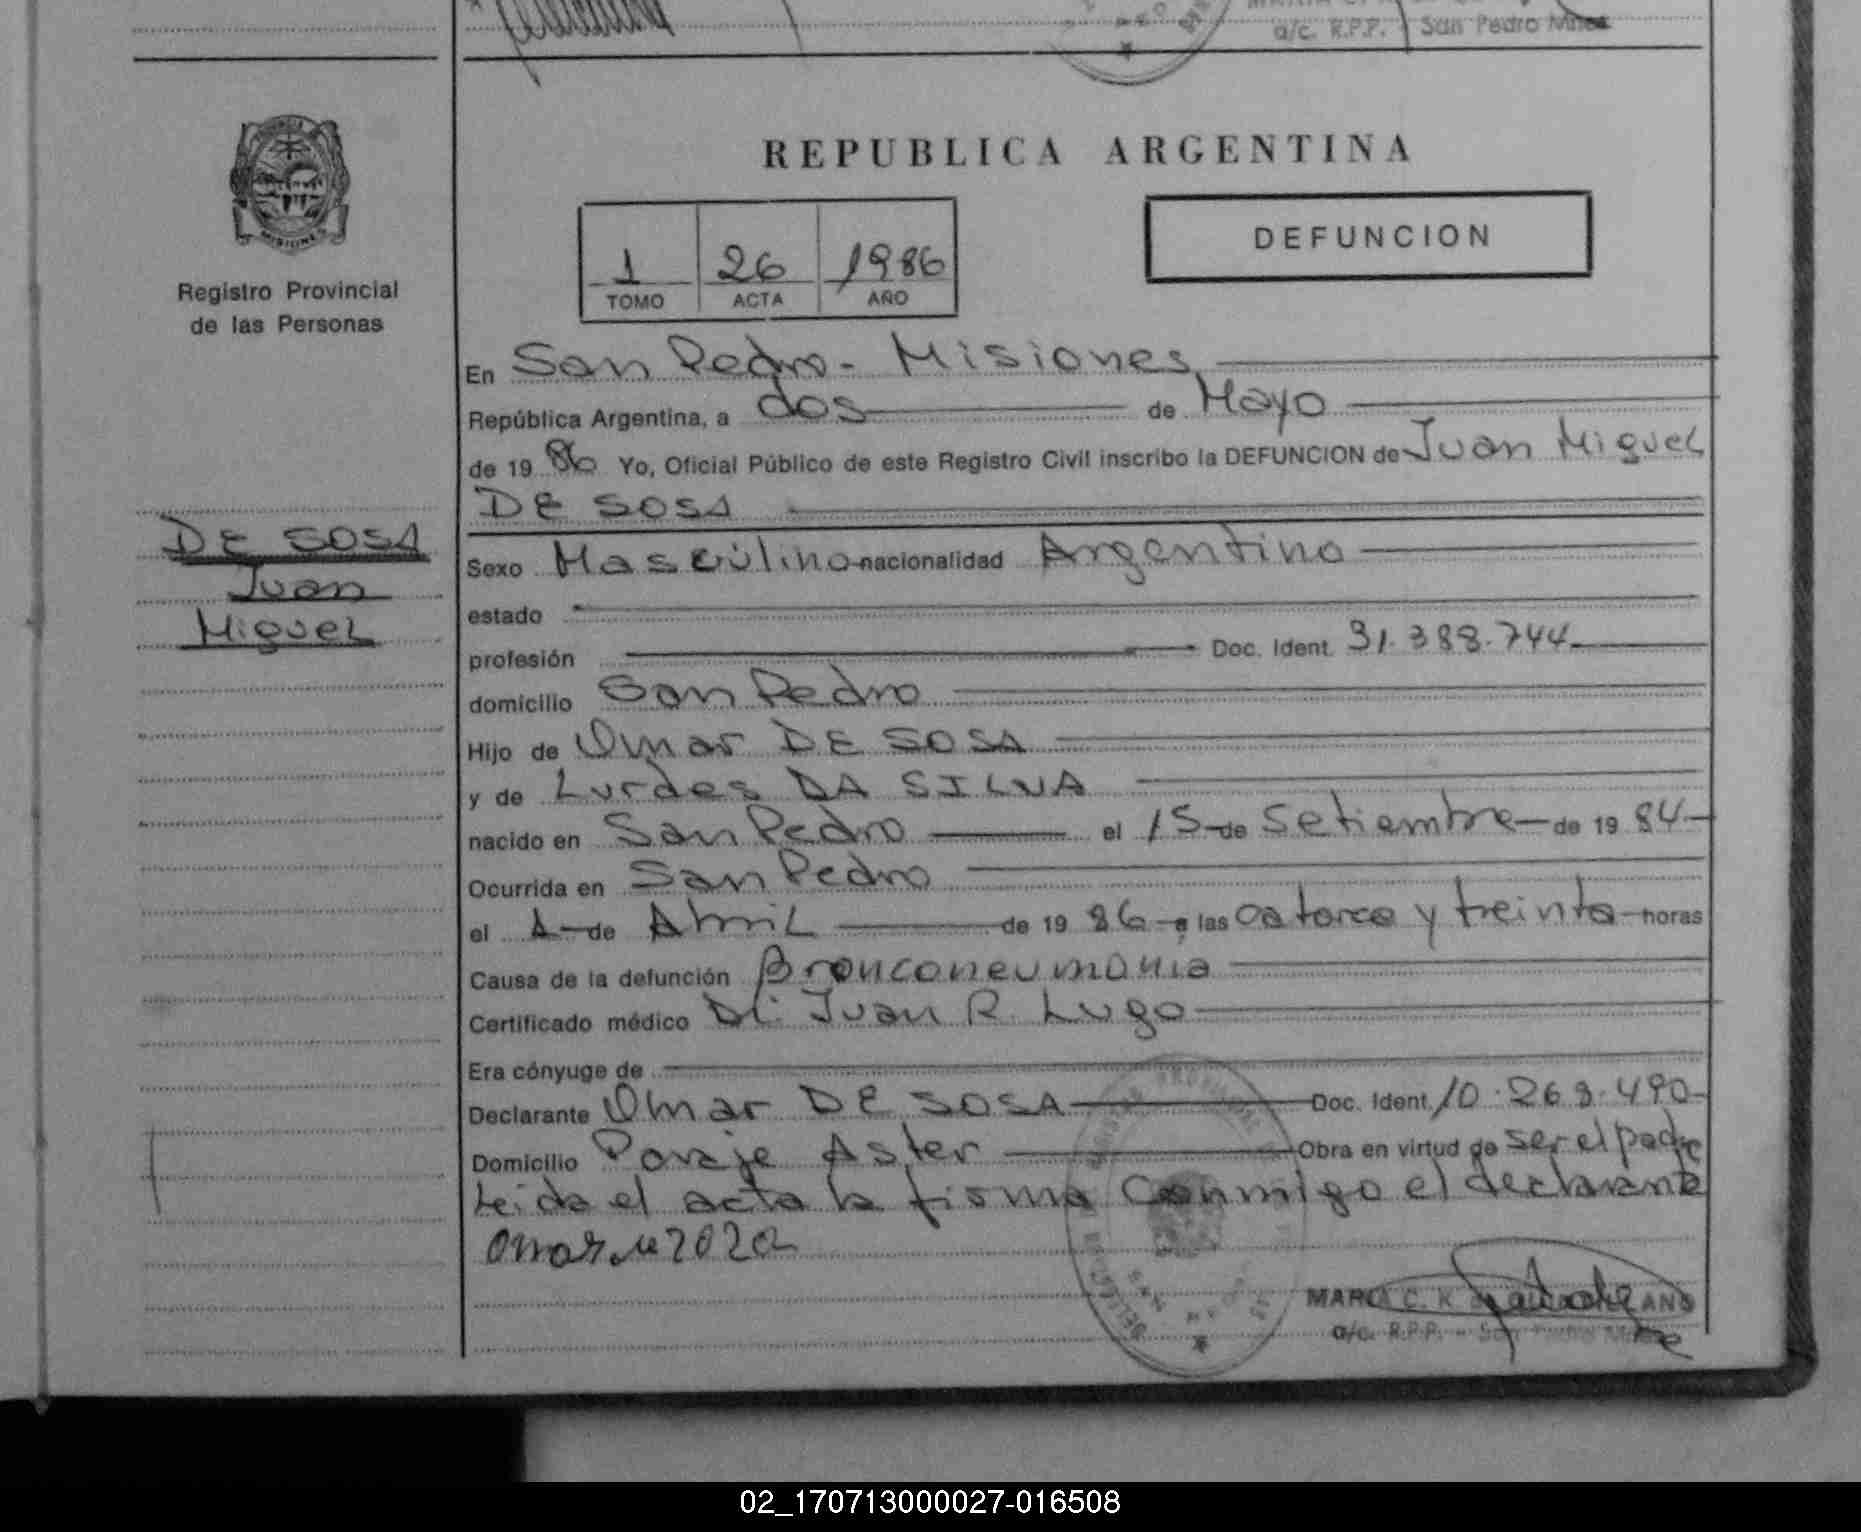 a/c. R.P.P. - San Pedro Mnes
REPUBLICA ARGENTINA
MISIONES
Registro Provincial
de las Personas
1 26 1986
TOMO ACTA AÑO
DEFUNCION
En San Pedro - Misiones
República Argentina, a dos de Mayo
de 19 86 Yo, Oficial Público de este Registro Civil inscribo la DEFUNCION de Juan Miguel
DE SOSA
DE SOSA
Juan
Miguel
Sexo Masculino nacionalidad Argentino
estado
profesión Doc. Ident. 31.388.744
domicilio San Pedro
Hijo de Omar DE SOSA
y de Lurdes DA SILVA
nacido en San Pedro el 15 de Setiembre de 19 84
Ocurrida en San Pedro
el 1 de Abril de 19 86 a las catorce y treinta horas
Causa de la defunción Bronconeumonia
Certificado médico Dr. Juan R. Lugo
Era cónyuge de
Declarante Omar DE SOSA Doc. Ident. 10.268.490
Domicilio Paraje Aster Obra en virtud de ser el padre
Leida el acta la firma conmigo el declarante
MARIA C. K.
a/c. R.P.P. - San Pedro
02_170713000027-016508